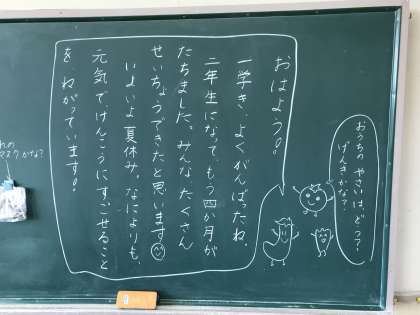 おはよう。
一学き、よくがんばったね。
二年生になって、もう四か月が
たちました。みんな たくさん
せいちょうできたと思います
いよいよ夏休み。なによりも、
元気でけんこうにすごせること
を ねがっています。
おうちの やさいは、どう？
げんきかな？
れの
マスクかな？